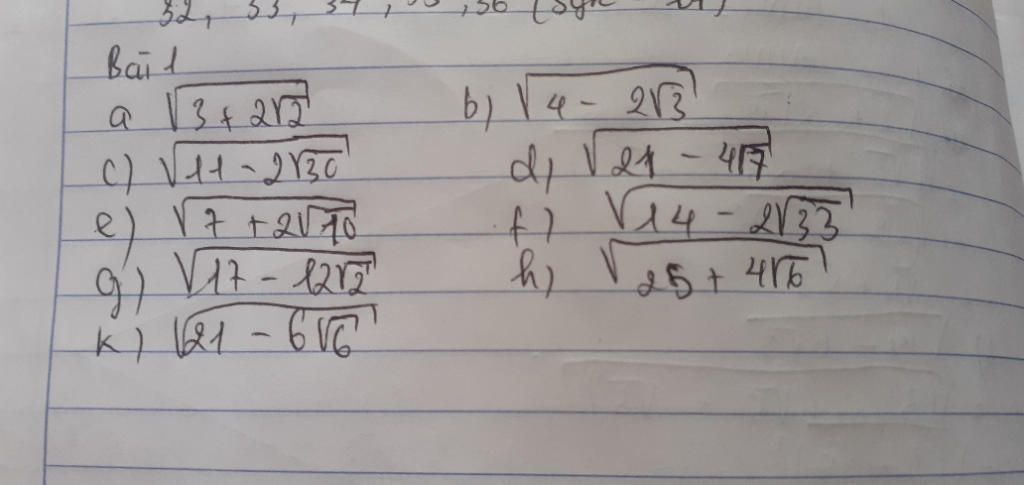 32, 33, 34, 35, 36 (Sgk
Bài 1
a √(3 + 2√2) b) √(4 - 2√3)
c) √(11 - 2√30) d) √(21 - 4√7)
e) √(7 + 2√10) f) √(14 - 2√33)
g) √(17 - 12√2) h) √(25 + 4√6)
k) √(21 - 6√6)